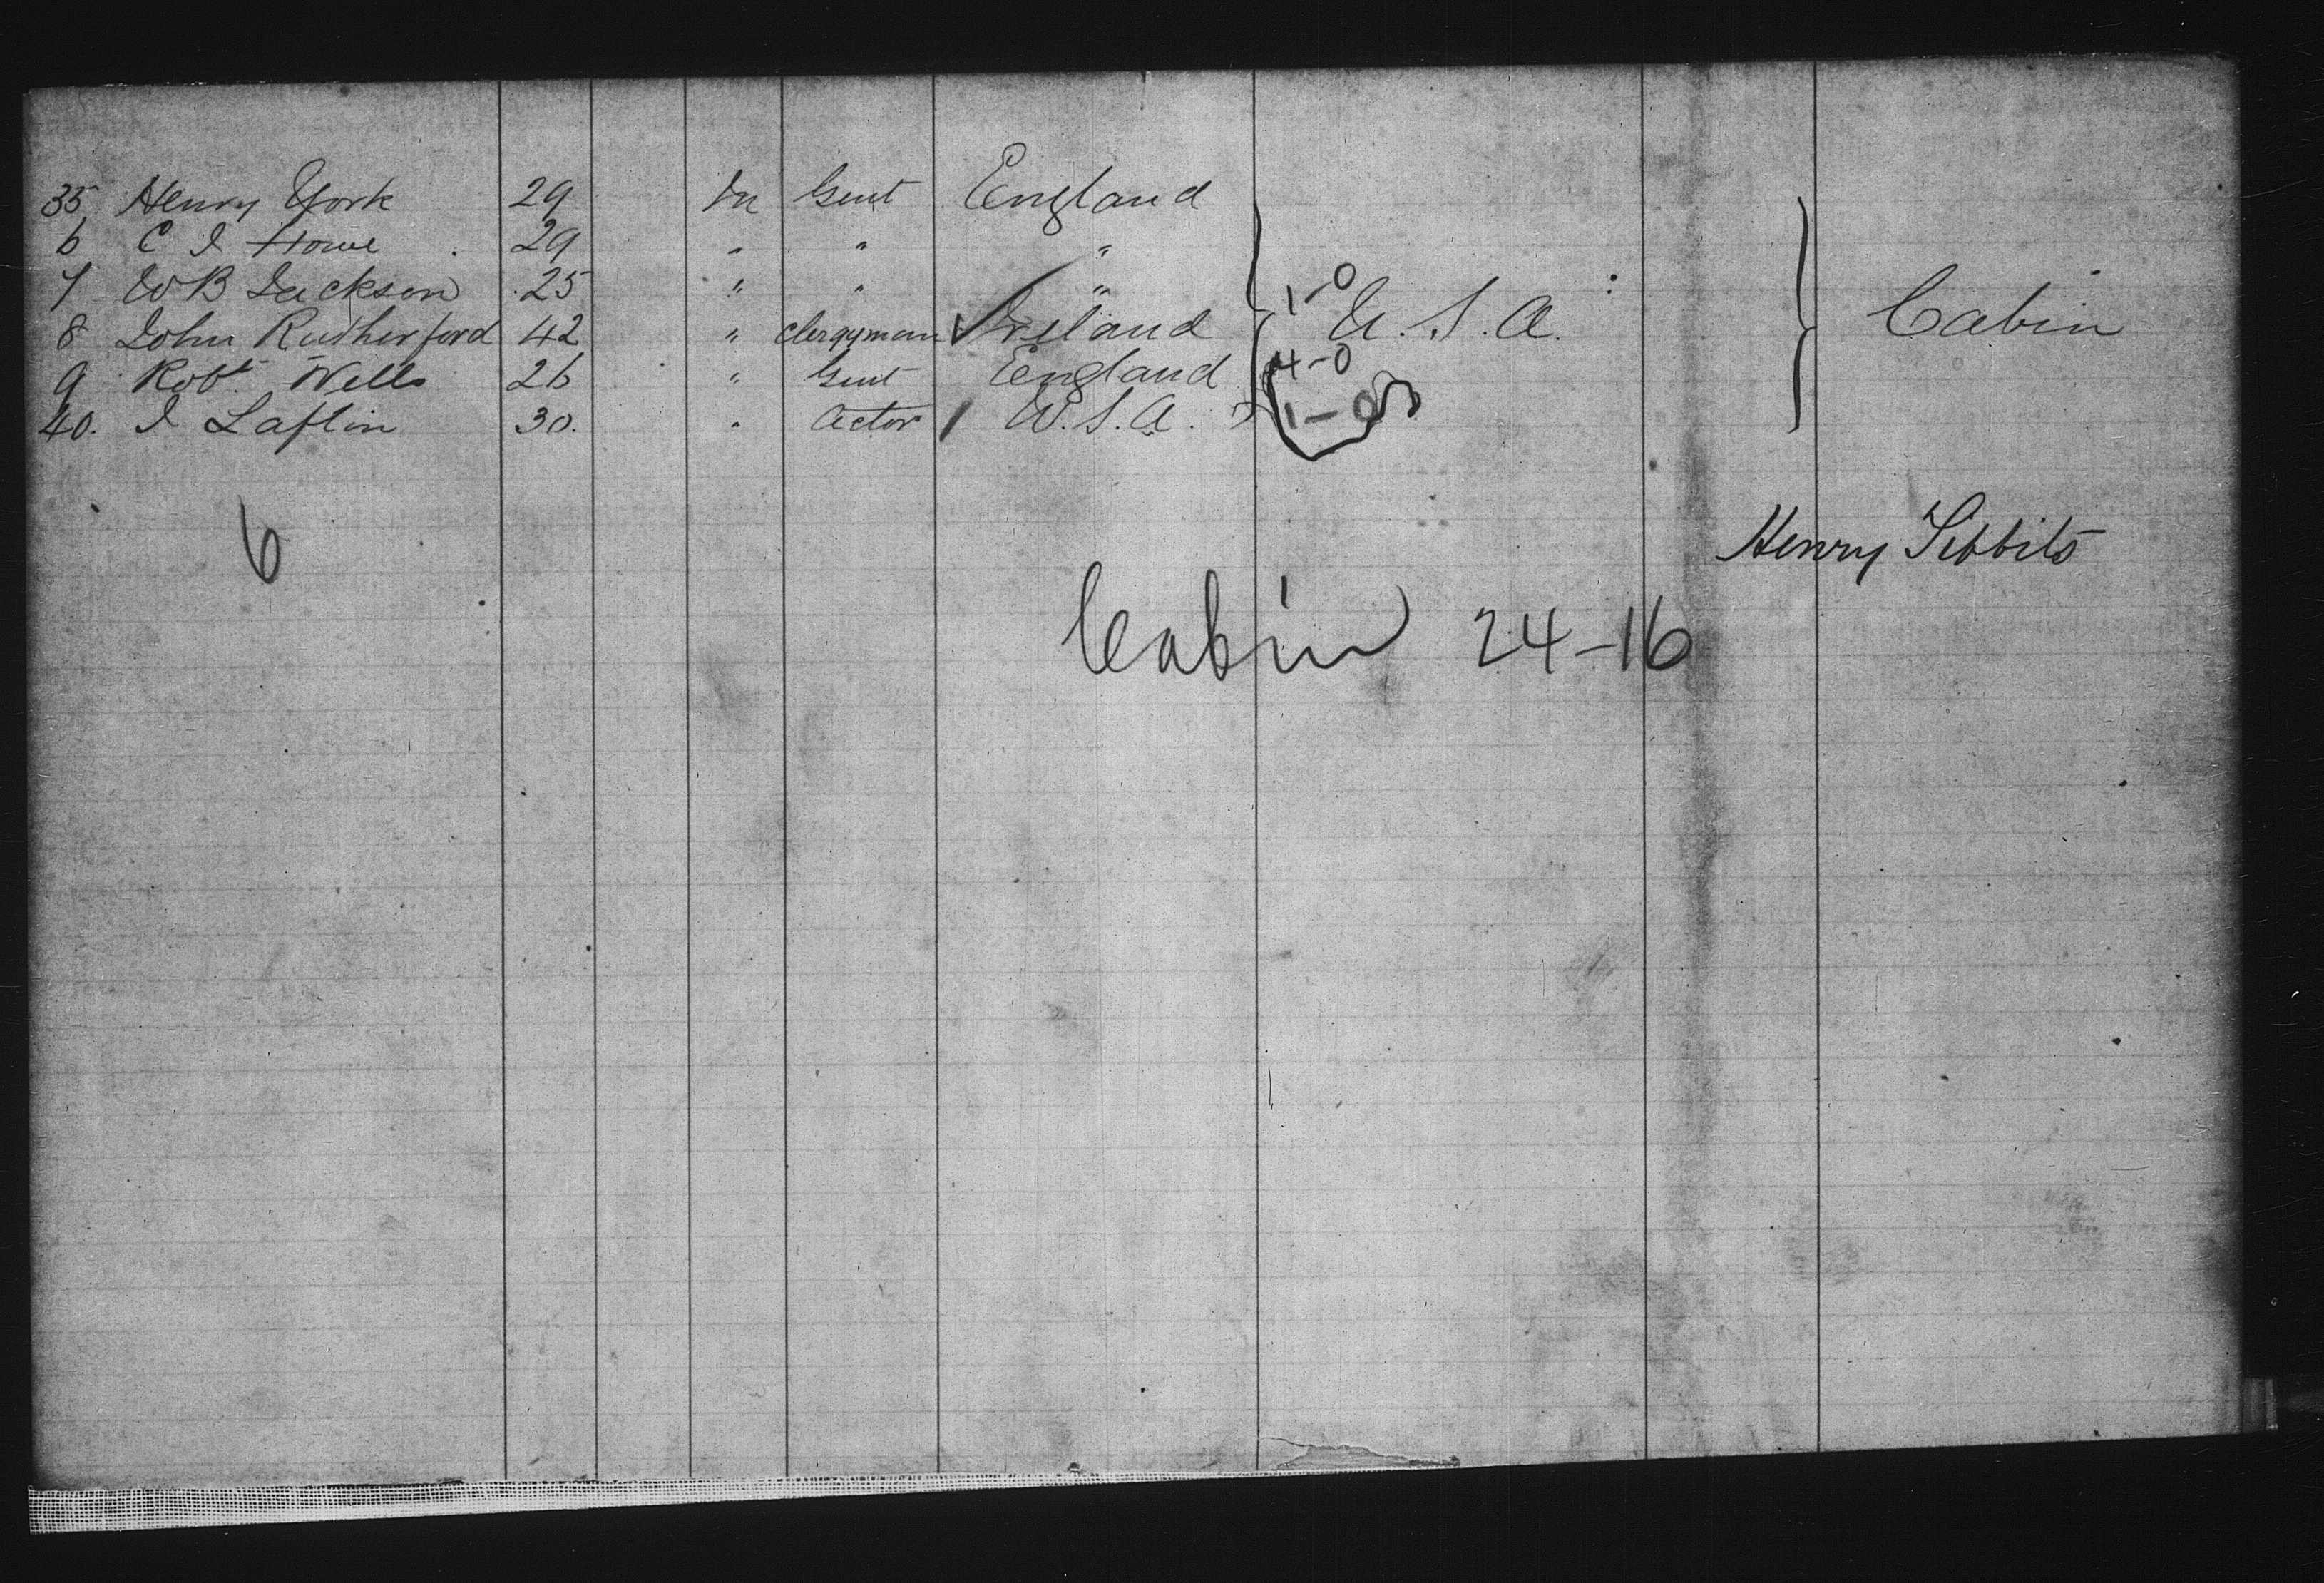 35 Henry York 29 m Gent England
6 C I Howe 29 " " "
7 W B Jackson 25 " " "
8 John Rutherford 42 " Clergyman Ireland U.S.A. Cabin
9 Robt Wells 26 " Gent England
40. J Laflin 30. " Actor U.S.A.
1-0
4-0
1-0
6
Henry Tibbits
Cabin 24-16